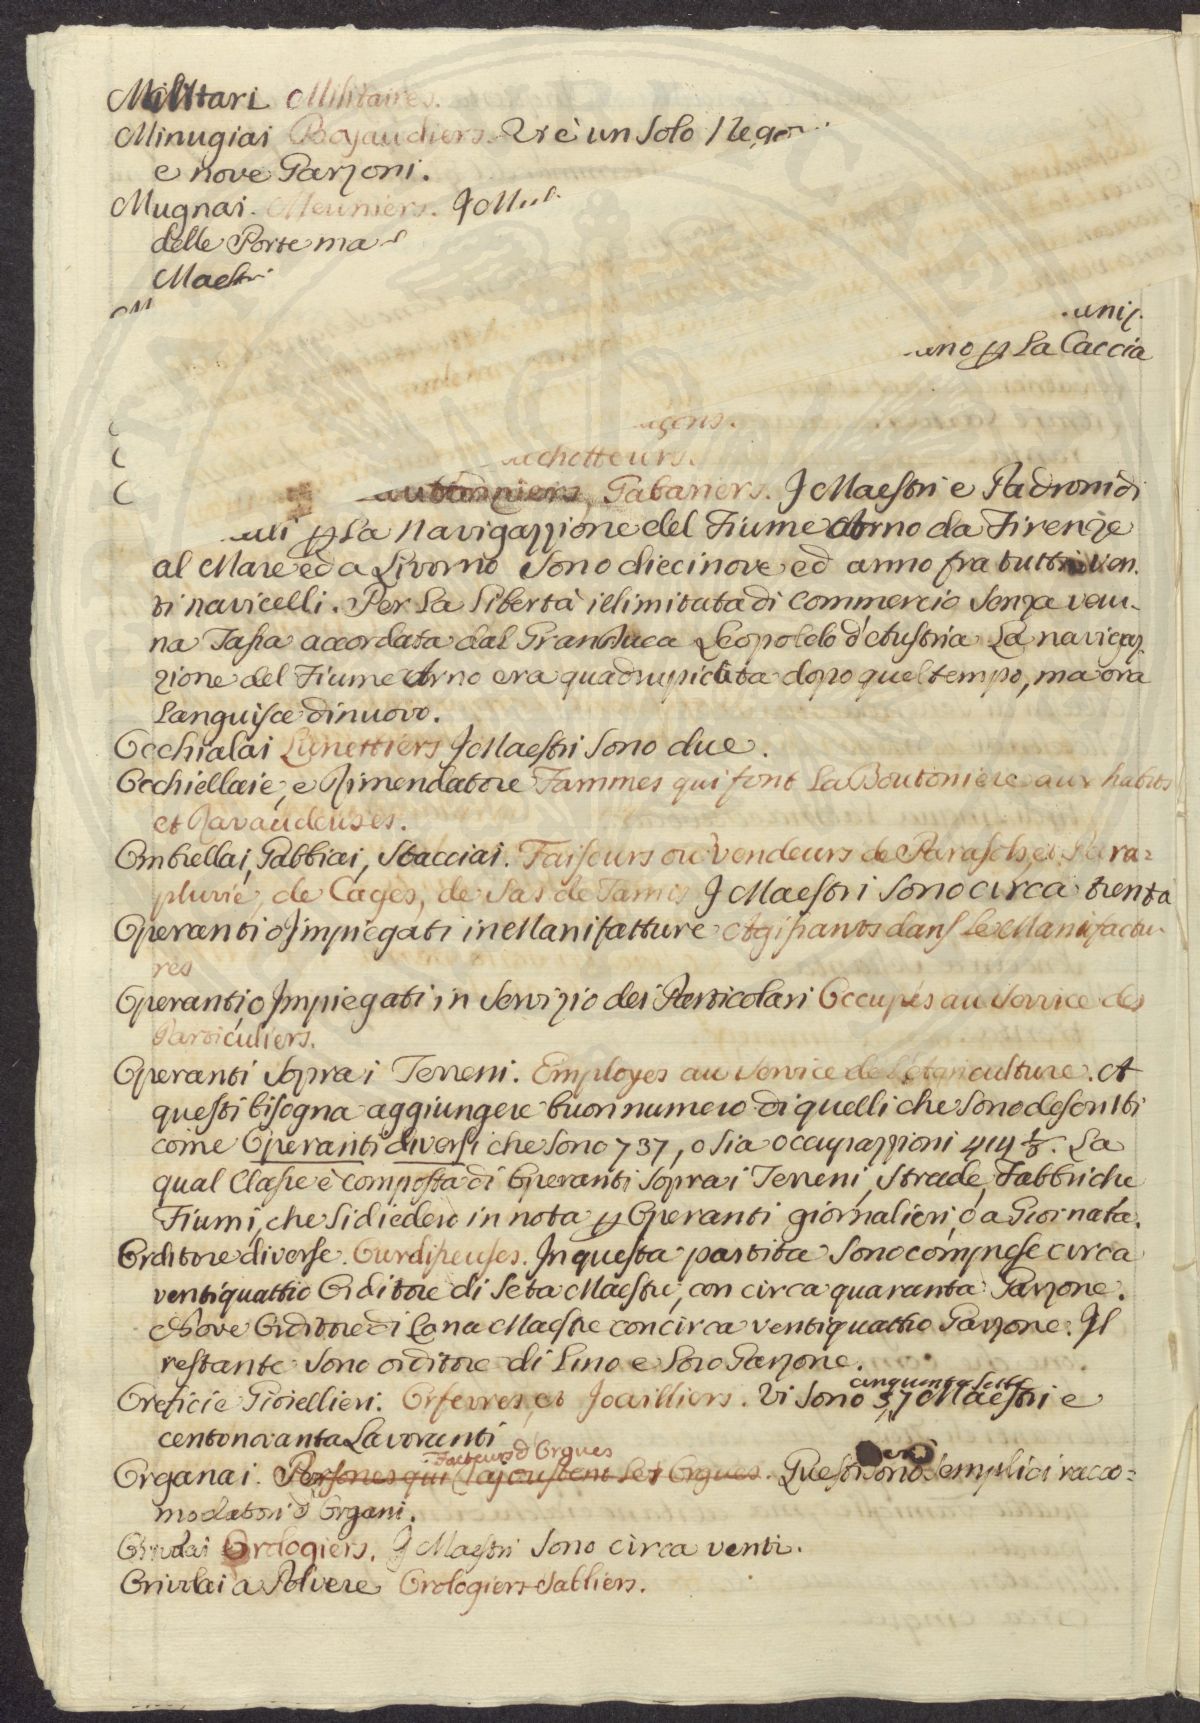 Militari Militaires.
Minugiai Boyaudiers. Vi è un solo
e nove Garzoni.
Mugnai. Meuniers. I
delle Porte ma
Maestri
uniz.
uno p La Caccia
Gabariers. I Maestri e Padroni di
p La Navigazzione del Fiume Arno da Firenze
al Mare ed a Livorno sono diecinove ed anno fra tutti ven-
ti navicelli. Per la libertà illimitata di commercio senza veru-
na Tassa accordata dal Granduca Leopoldo d'Austria La navigaz-
zione del Fiume Arno era quadrupicata dopo quel tempo, ma ora
Languisce di nuovo.
Occhialai Lunettiers I Maestri sono due.
Occhiellaie, e Rimendatore Fammes qui font La Boutoniere aux habits
et Ravaudeuses.
Ombrellai, Gabbiai, Stacciai. Faiseurs ou Vendeurs de Parasols, et Para=
pluvie, de Cages, de Sas de Tamis I Maestri sono circa trenta
Operanti o Impiegati in Manifatture Agissants dans Le Manifactu-
res
Operanti, o Impiegati in servizio dei Particolari Occupés au Service des
Particuliers.
Operanti sopra i Terreni. Employes au Service de l'Agriculture. A
questi bisogna aggiungere buon numero di quelli che sono descritti
come Operanti diversi che sono 737, o sia occupazzioni 414 ½. La
qual Classe è composta di Operanti sopra i Terreni, Strade, Fabbriche
Fiumi, che si diedero in nota p Operanti giornalieri, o a Giornata.
Orditore diverse. Ourdisseuses. In questa partita sono comprese circa
ventiquattro Orditore di Seta Maestre, con circa quaranta Garzone.
Nove Orditore di Lana Maestre con circa ventiquattro Garzone. Il
restante sono orditore di Lino e Loro Garzone.
Orefici e Gioiellieri. Orfevres, et Joailliers. Vi sono cinquanta sette 57 Maestri e
centonovanta Lavoranti
Organai. Persones qui rajoustent Les Orgues. Facteurs d'Orgues Questi sono semplici racco=
modatori d'Organi.
Oriolai Orologiers. I Maestri sono circa venti.
Oriolai a Polvere Orologiers Sabliers.